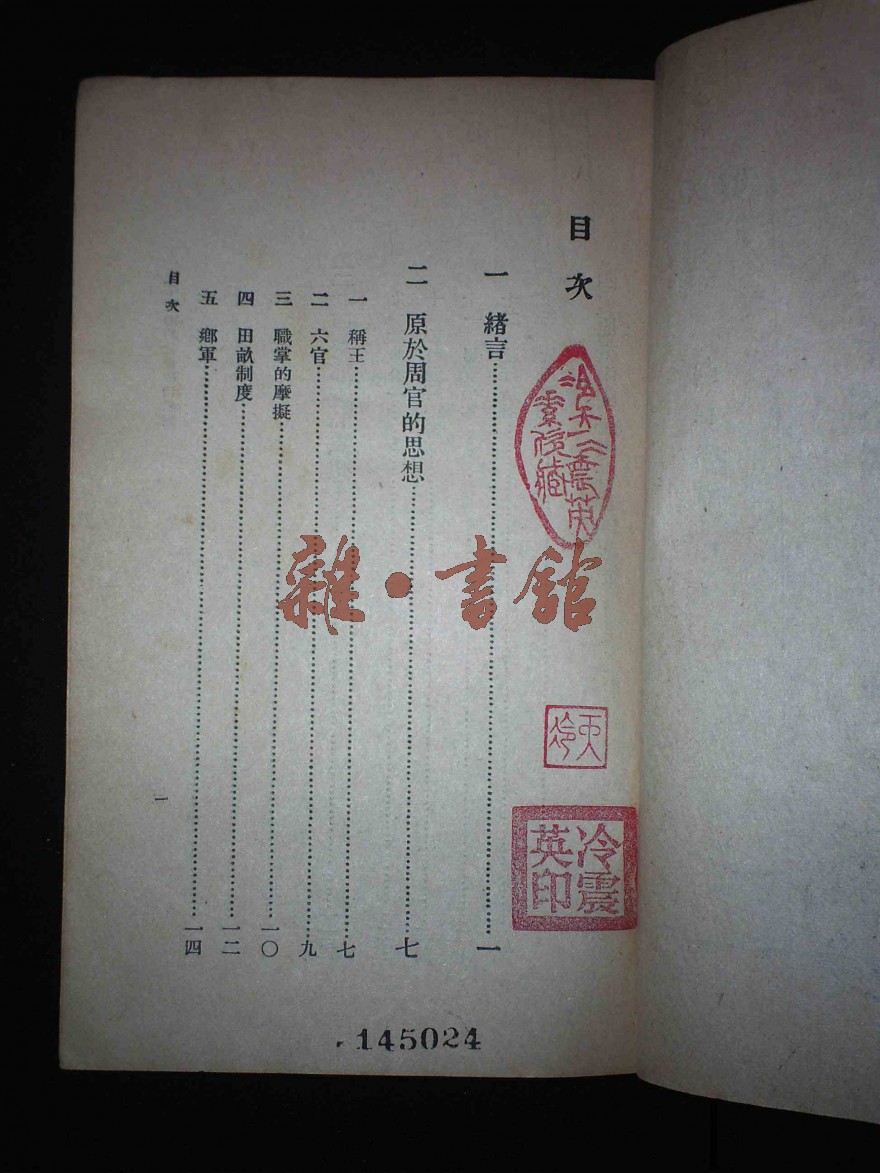 目次
一　緒言………一
二　原於周官的思想………七
一　稱王………七
二　六官………九
三　職掌的摩擬………一〇
四　田畝制度………一二
五　鄉軍………一四
目次
一
冷震英印
雜·書館
145024